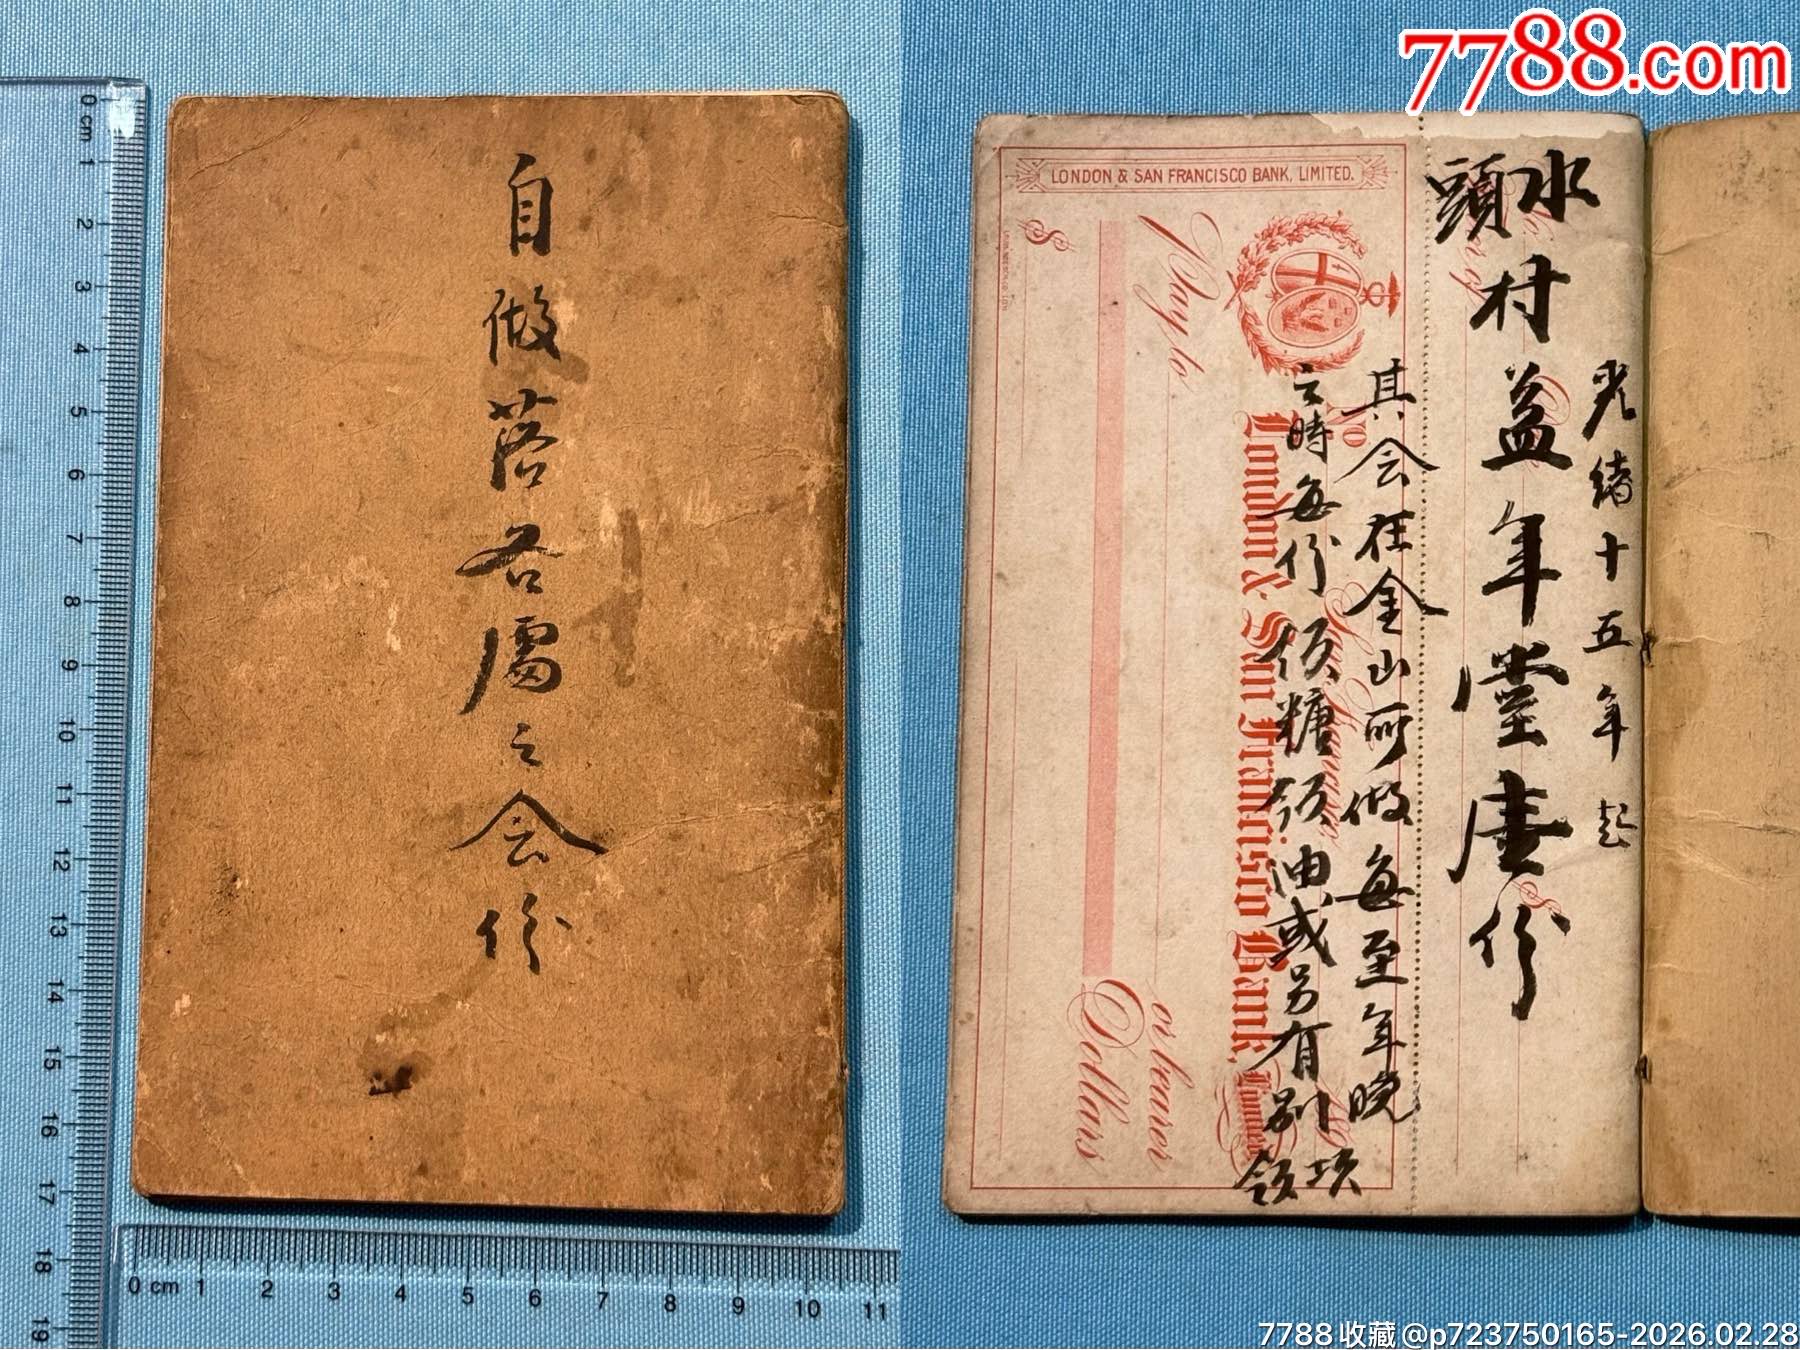 自做落各處之会份
7788.com
LONDON & SAN FRANCISCO BANK, LIMITED.
光緒十五年起
水頭村益年堂壹份
其会在金山所做每至年晚
之時每份領糖領油或另有别項領
$
Pay to
or bearer
Dollars
No
London & San Francisco Bank, Limited
0 cm 1 2 3 4 5 6 7 8 9 10 11 12 13 14 15 16 17 18 19
0 cm 1 2 3 4 5 6 7 8 9 10 11
7788收藏@p723750165-2026.02.28